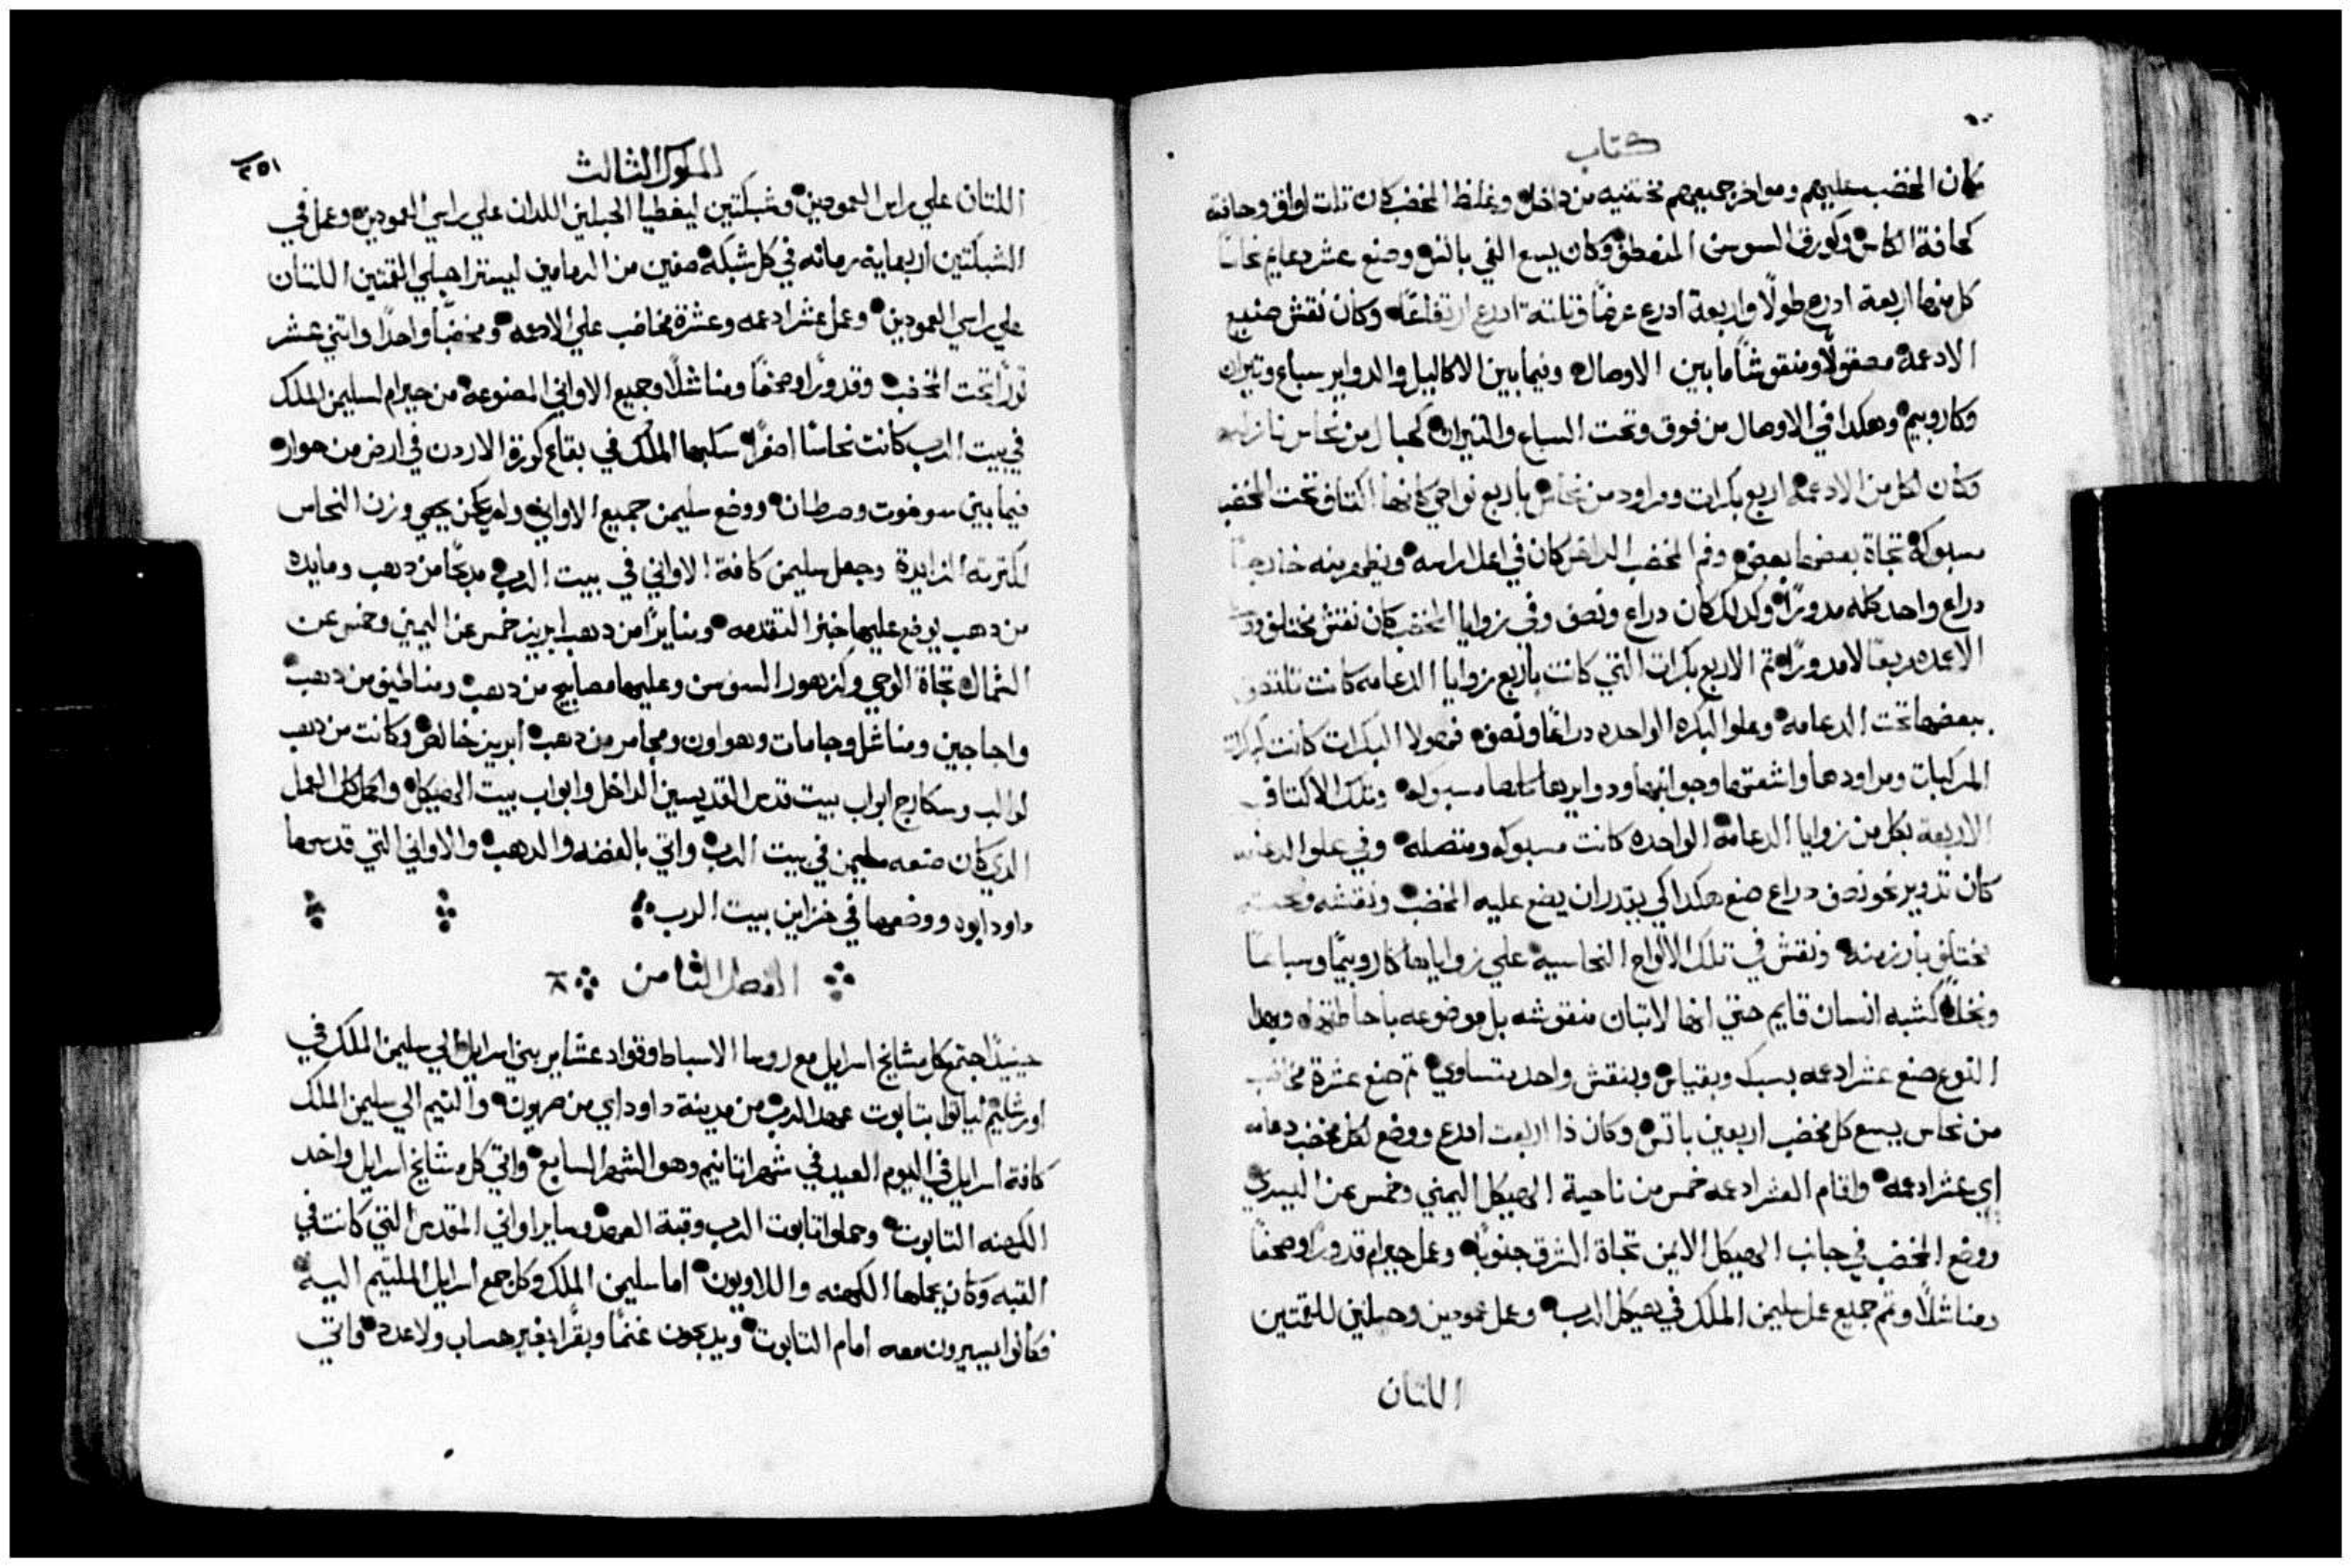 كتاب
كان المخضب عليهم ومواخر جميعهم مختفيه من داخل وغلظ المخضب كان تلت اواق وحافته
كحافة الكاس وكورق السوسن المنعطق وكان يسع الفي باتس وصنع عشر دعايم نحاسًا
كل منها اربعة ادرع طولًا واربعة ادرع عرضًا وتلتة ادرع ارتفاعًا وكان نقش صنيع
الادعمه مصقولًا ومنقوشًا ما بين الاوصال وفيما بين الاكاليل والدواير سباع وتيران
وكاروبيم وهكدا في الاوصال من فوق وتحت السباع والتيران كحبال من نحاس نازليه
وكان لكل من الادعمه اربع بكرات ومراود من نحاس باربع نواحي كانها اكتاف تحت المخضب
مسبوكة تجاة بعضها بعض وفم المخضب الداخل كان في اعلا راسه ويظهر منه خارجًا
دراع واحد كله مدورًا وكدلك كان دراع ونصف وفي زوايا المخضب كان نقش مختلق
الاعمده مربعًا لا مدورًا تم الاربع بكرات التي كانت باربع زوايا الدعامه كانت تلتصق
ببعضها تحت الدعامه وعلو البكره الواحده دراعًا ونصف فهولا البكرات كانت كبكرات
المركبات ومراودها واشفتها وجوانبها ودوايرها كلها مسبوكه وتلك الاكتاف
الاربعة بكل من زوايا الدعامة الواحده كانت مسبوكه ومتصله وفي علو الدعامه
كان تدوير نحو نصف دراع صنع هكدا كي يقدر ان يضع عليه المخضب ونقشه
مختلق بارز منه ونقش في تلك الالواح النحاسيه علي زواياها كاروبيمًا وسباعًا
ونخلًا كشبه انسان قايم حتي انها لا تبان منقوشه بل موضوعه باحاطتها وبهدا
النوع صنع عشر ادعمه بسبك وبقياس وبنقش واحد متساوي تم صنع عشرة مخاضب
من نحاس يسع كل مخضب اربعين باتس وكان ذا اربعت ادرع ووضع لكل مخضب دعامه
اي عشر ادعمه واقام العشر ادعمه خمس من ناحية الهيكل اليمني وخمس عن اليسري
ووضع المخضب في جانب الهيكل الايمن تجاة الشرق جنوبًا وعمل حيرام قدورًا وصحفًا
ومناشلًا وتم جميع عمل سليمن الملك في هيكل الرب وعمل عمودين وحبلين للقمتين
اللتان
الملوك الثالث
٢٥١
اللتان علي راس العمودين وشبكتين ليغطيا الحبلين اللدان علي راسي العمودين وعمل في
الشبكتين اربعماية رمانه في كل شبكة صفين من الرمامين ليسترا حبلي القمتين اللتان
علي راسي العمودين وعمل عشر ادعمه وعشرة مخاضب علي الادعمه ومخضبًا واحدًا واتني عشر
تورًا تحت المخضب وقدورًا وصحفًا ومناشلًا وجميع الاواني المصنوعه من حيرام لسليمن الملك
في بيت الرب كانت نحاسًا اصفرًا سكبها الملك في بقاع كورة الاردن في ارض من حواره
فيما بين سوخوت وصرطان ووضع سليمن جميع الاواني ولم يكن يحصي وزن النحاس
لكترته الزايدة وجعل سليمن كافة الاواني في بيت الرب مدبحًا من دهب ومايده
من دهب يوضع عليها خبز التقدمه ومنايرًا من دهب ابريز خمس عن اليمين وخمس عن
الشمال تجاة الوحي وكزهور السوسن وعليها مصابيح من دهب ومناطيق من دهب
واجاجين ومناشل وجامات وهواون ومجامر من دهب ابريز خالص وكانت من دهب
لوالب وسكارج ابواب بيت قدس القديسين الداخل وابواب بيت الهيكل واكمل كل العمل
الدي كان صنعه سليمن في بيت الرب واتي بالفضه والدهب والاواني التي قدسها
داود ابوه ووضعها في خزاين بيت الرب
الفصل الثامن ٨
حينيدًا اجتمع كل مشايخ اسرايل مع روسا الاسباط وقواد عشاير بني اسرايل الي سليمن الملك في
اورشليم لياتوا بتابوت عهد الرب من مدينة داود اي من صهيون والتيم الي سليمن الملك
كافة اسرايل في اليوم العيد في شهر اتانيم وهو الشهر السابع واتي كل مشايخ اسرايل واخد
الكهنه التابوت وحملوا تابوت الرب وقبة العهد وساير اواني المقدس التي كانت في
القبه وكان يحملها الكهنه واللاويون اما سليمن الملك وكل جمع اسرايل الملتيم اليه
فكانوا يسيرون معه امام التابوت ويدبحون غنمًا وبقرًا بغير حساب ولا عدد واتي